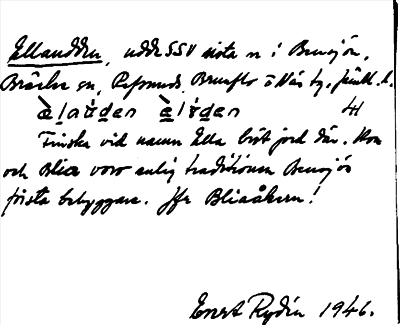 Ellaudden, udde SSV sista n i Bensjön,
Bräcke sn, Refsunds, Brunflo o Näs tg, Jämtl. l.
à l a ù d e n à l ù d e n 41
Finska vid namn Ella bröt jord där. Hon
och Blia voro enlig traditionen Bensjös
första bebyggare. Jfr Bliaåkern!
Ernst Rydin 1946.